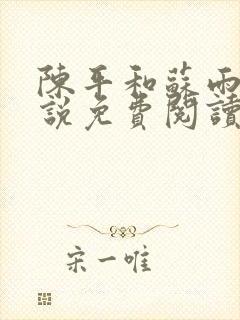 陳平和蘇雨
說免費閱讀
宋一唯